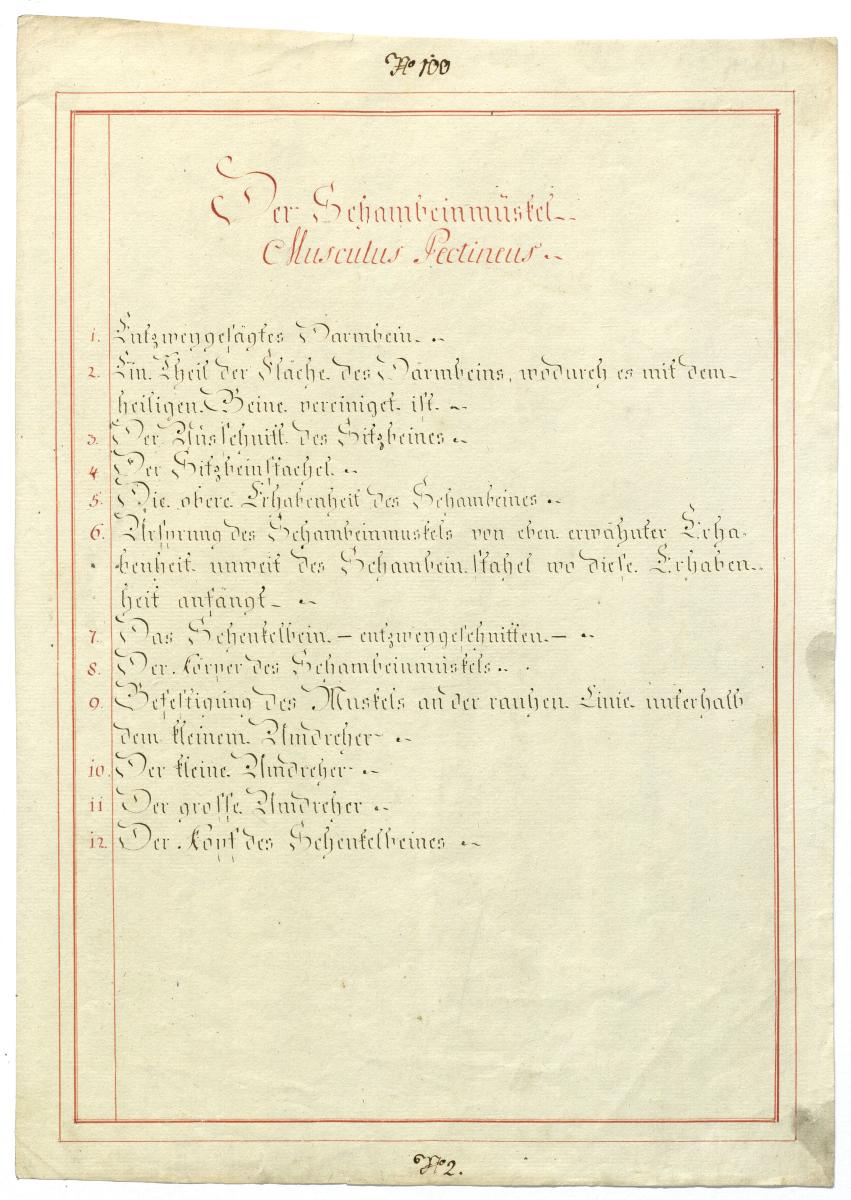 No 100
Der Schambeinmuskel
Musculus Pectineus
1. Entzweygesägtes Darmbein.
2. Ein Theil der Fläche des Darmbeins, wodurch es mit dem
heiligen Beine vereiniget ist.
3. Der Ausschnitt des Sitzbeines
4 Der Sitzbeinstachel.
5. Die obere Erhabenheit des Schambeines
6. Ursprung des Schambeinmuskels von eben erwähnter Erha-
benheit unweit des Schambein stahel wo diese Erhaben-
heit anfängt
7. Das Schenkelbein. – entzweygeschnitten. –
8. Der Körper des Schambeinmuskels.
9. Befestigung des Muskels an der rauhen Linie unterhalb
dem kleinem Umdreher
10. Der kleine Umdreher
11 Der grosse Umdreher
12. Der Kopf des Schenkelbeines
No 2.